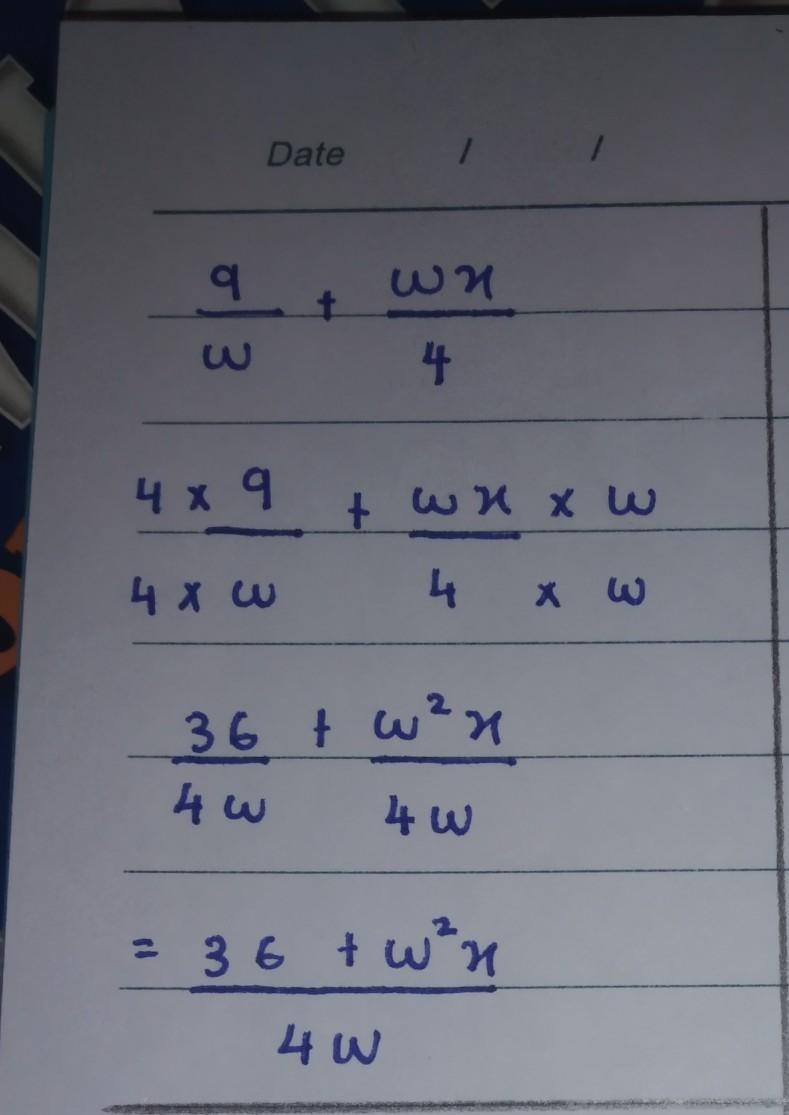 Date / /
9/w + wx/4
4 x 9/4 x w + wx x w/4 x w
36/4w + w²x/4w
= 36 + w²x/4w